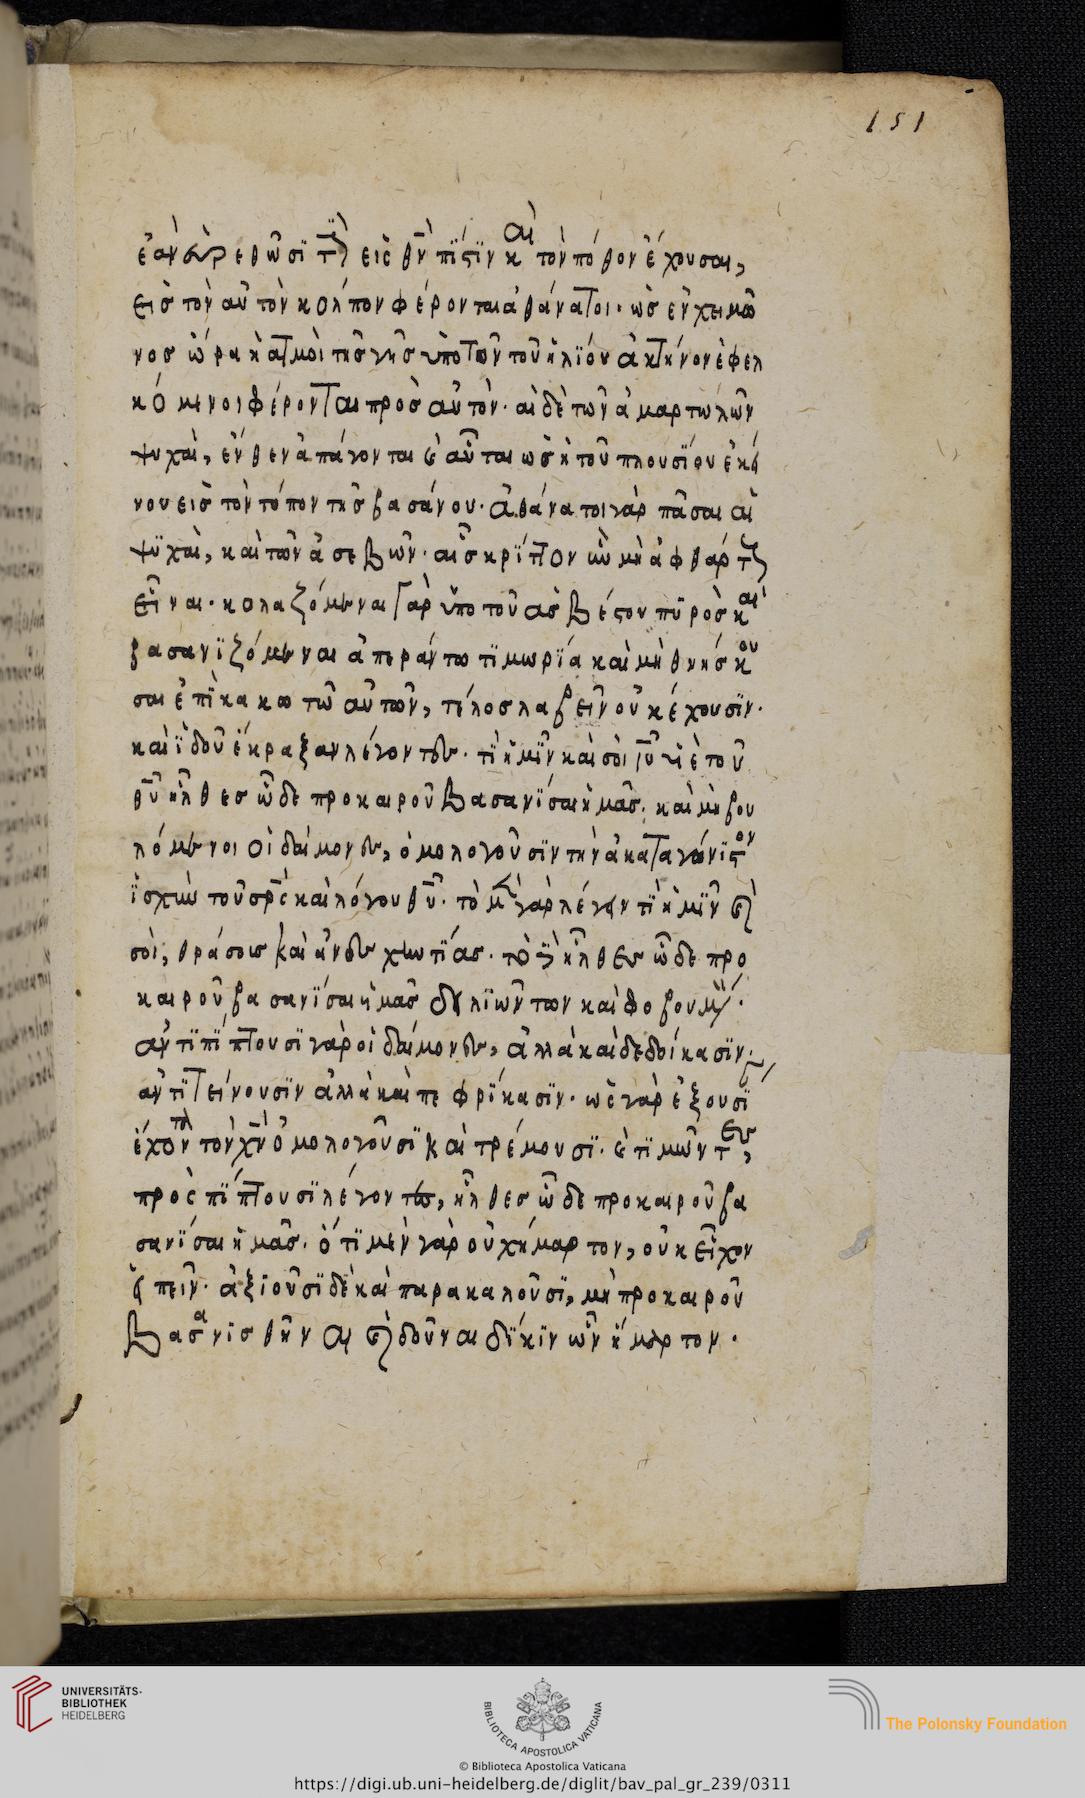 151
ἐὰν εὑρεθῶσι τὴν εἰς θν πίστιν κ τὸν πόθον ἔχουσαι,
εἰς τὸν αὐτὸν κόλπον φέρονται ἀθάνατοι· ὡς ἐν χειμῶ
νος ὥρα κ ἀτμοὶ τῆς γῆς ὑπὸ τῶν τοῦ ἡλίου ἀκτήνον ἐφελ
κόμενοι φέρονται πρὸς αὐτόν· αἱ δὲ τῶν ἁμαρτωλῶν
ψυχαὶ, ἔνθεν ἀπάγονται κ αὗται ὡς ἡ τοῦ πλουσίου ἐκεί
νου εἰς τὸν τόπον τῆς βασάνου· ἀθάνατοι γὰρ πᾶσαι αἱ
ψϋχαὶ, καὶ τῶν ἀσεβῶν· αἷς κρίττον ἦν μὴ ἀφθάρτους
εἶναι· κολαζόμεναι γὰρ ὑπὸ τοῦ ἀσβέστου πϋρὸς καὶ
βασανϊζόμεναι ἀπεράντω τϊμωρΐα καὶ μὴ θνήσκου
σαι ἐπὶ κακῶ τῶ αὐτῶν, τέλος λαβεῖν οὐκ ἔχουσϊν·
καὶ ϊδοῦ ἔκραξαν λέγοντες· τὶ ἡμῖν καὶ σὸι ιυ υἱὲ τοῦ
θυ ἦλθες ὧδε προκαιροῦ βασανΐσαι ἡμᾶς· καὶ μὴ βου
λόμενοι οἱ δαίμονες, ὁμολογοῦσϊν τὴν ἀκαταγώνϊστον
ϊσχὺν τοῦ σρς καὶ λόγου θυ· τὸ μὲν γὰρ λέγειν τὶ ἡμῖν κ
σὸι, θράσους καὶ ἀνδεσχυντΐας· τὸ δὲ ἦλθες ὧδε προ
καιροῦ βασανΐσαι ἡμᾶς δϋλϊώντων καὶ φοβουμένων·
ἀντϊπΐπτουσι γὰρ οἱ δαίμονες, ἀλλὰ καὶ δεδοίκασϊν·
ἀντϊτείνουσϊν ἀλλὰ καὶ πεφρίκασϊν· ὡς γὰρ ἐξουσΐ
ἔχοντα τὸν χν ὁμολογοῦσϊ καὶ τρέμουσϊ· κ τϊμῶντες,
πρὸς πΐπτουσϊ λέγοντες, ἦλθες ὧδε προκαιροῦ βα
σανΐσαι ἡμᾶς· ὅτϊ μὲν γὰρ οὐχ ἥμαρτον, οὐκ εἶχον
εἰπεῖν· ἀξιοῦσϊ δὲ καὶ παρακαλοῦσϊ, μὴ προκαιροῦ
βασανϊσθῆναι κ δοῦναι δΐκϊν ὧν ἥμαρτον·
UNIVERSITÄTS-
BIBLIOTHEK
HEIDELBERG
BIBLIOTECA APOSTOLICA VATICANA
The Polonsky Foundation
© Biblioteca Apostolica Vaticana
https://digi.ub.uni-heidelberg.de/diglit/bav_pal_gr_239/0311